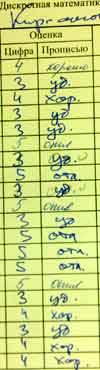 Дискретная математик
Оценка
Цифра Прописью
4 хорошо
3 уд.
4 хор.
3 уд
3 уд.
5 отл
3 уд.
5 отл.
3 уд.
5 отл
3 уд
5 отл
5 отл.
5 отл.
5 отл
3 уд.
4 хор.
3 уд
4 хор.
4 хор.